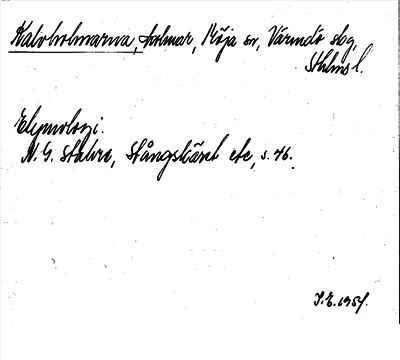 Kalvholmarna, holmar, Möja sn, Värmdö skg,
Sthlms l.
Etymologi.
N. G. Stahre, Stångskäret etc, s. 46.
I.E. 1957.